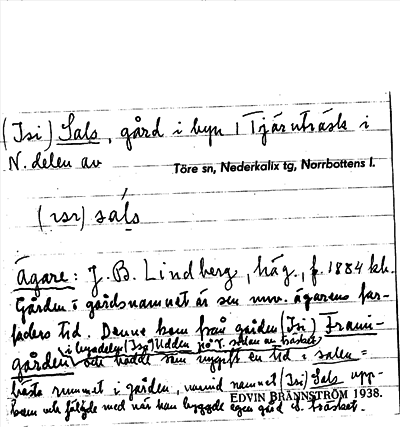 (Isi) Sals, gård i byn 1 Tjärnträsk i
N. delen av Töre sn, Nederkalix tg, Norrbottens l.
(ısı) sals
Ägare: J. B. Lindberg, häg., f. 1884 kh.
Gården i gårdsnamnet är sen nuv. ägarens far-
faders tid. Denne kom från gården (Isi) Fram-
i byadelen (Isa) Udden på v. sidan av träsket
gården och hodde som nygift en tid i salen =
bästa rummet i gården, varvid namnet (Isi) Sals upp-
kom och följde med när han byggde egen gård ö. träsket.
EDVIN BRÄNNSTRÖM 1938.